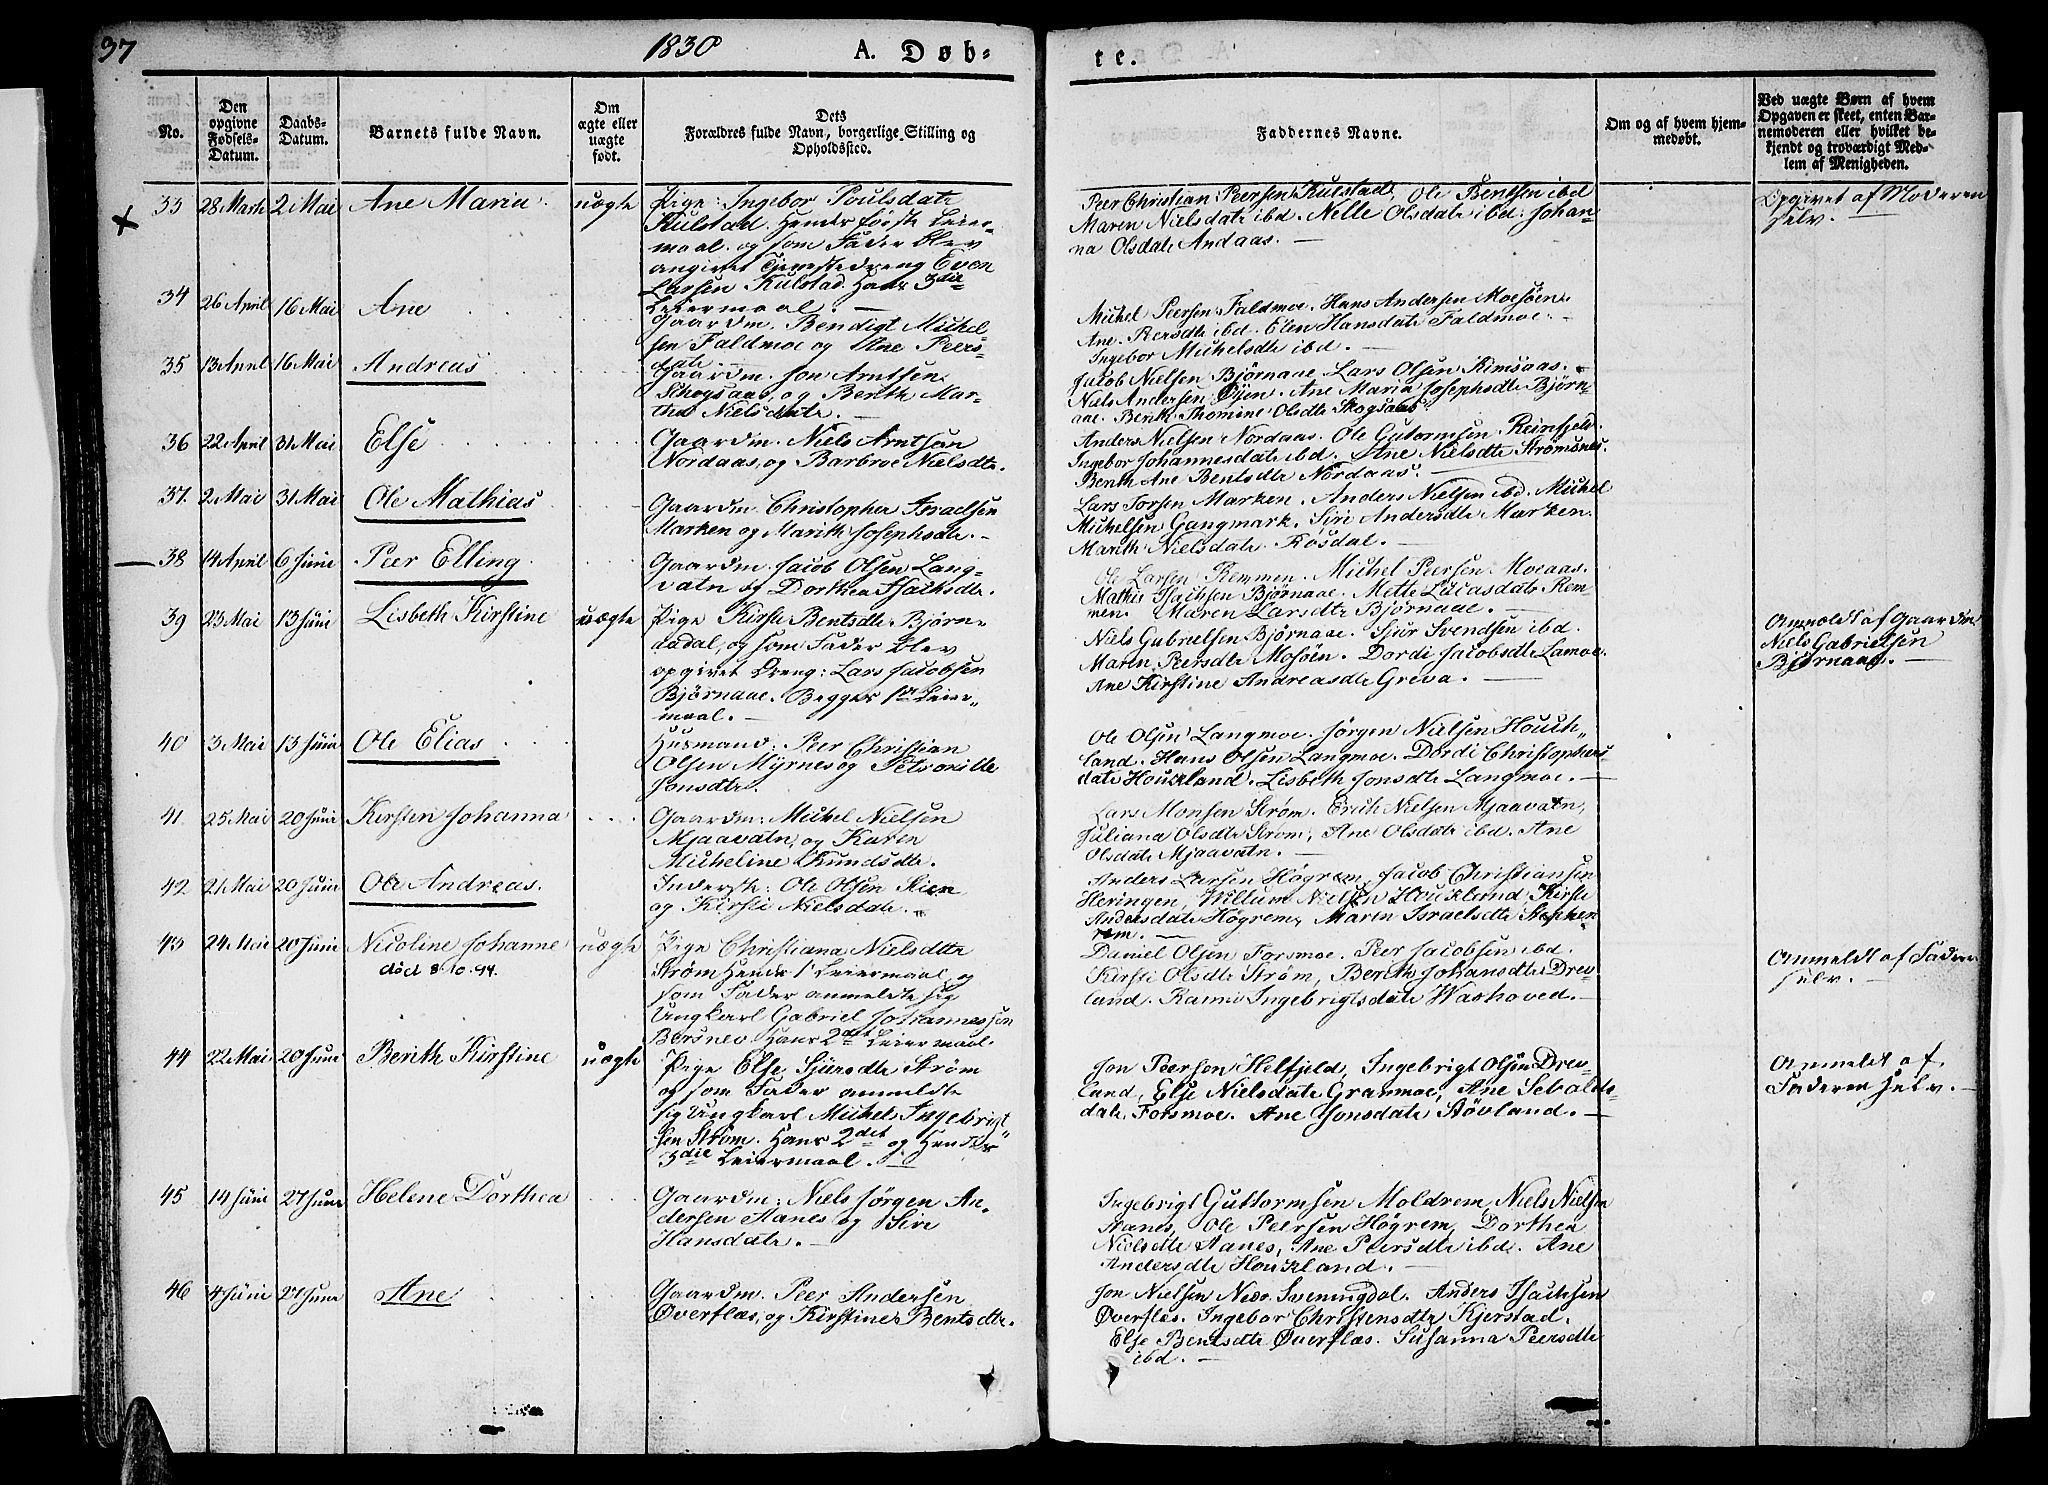 37
1830
A. Døb-
te.
No.
Den
opgivne
Fødsels-
Datum.
Daabs-
Datum.
Barnets fulde Navn.
Om
ægte eller
uægte
født.
Dets
Forældres fulde Navn, borgerlige Stilling og
Opholdssted.
Faddernes Navne.
Om og af hvem hjem-
medøbt.
Ved uægte Børn af hvem
Opgaven er skeet, enten Bar-
nemoderen eller hvilket be-
kjendt og troværdigt Med-
lem af Menigheden.
33 28 Marts 2 Mai Ane Maria. uægte
Pige: Ingebor Poulsdate
Kulstad. Hendes første Leier-
maal. og som Fader blev
angivet Tjenestedreng Even
Larsen Kulstad. Hans 3die
Leiermaal. —
Peer Christian Peersen Kulstad, Ole Bentsen ibd
Maren Nielsdate ibd. Nelle Olsdate ibd. Johan-
na Olsdate Andaas. —
Opgivet af Moderen
selv. —
34 26 April 16 Mai Ane
Gaardm. Bendigt Michel
sen Faldmoe og Ane Peers-
date.
Michel Peersen Faldmoe. Hans Andersen Moesøen.
Ane Peersdte ibd. Elen Hansdate Faldmoe.
Ingebor Michelsdte ibd. —
35 13 April 16 Mai Andreas
Gaardm. Jon Arntsen
Schogsaas, og Berith Mar-
tha Nielsdate. —
Jacob Nielsen Bjørnaae. Lars Olsen Kimsaas.
Niels Andersen Øyen. Ane Maria Josephsdte Bjørn-
aae. Berith Thomine Olsdte Skogsaas
36 22 April 31 Mai Else
Gaardm. Niels Arntsen
Nordaas, og Barbroe Nielsdte.
Anders Nielsen Nordaas. Ole Gutormsen Reinfjeld.
Ingebor Johannesdate ibd. Ane Nielsdte Strømsnes.
Berith Ane Bentsdte Nordaas. —
37. 2 Mai 31 Mai Ole Mathias
Gaardm. Christopher Israelsen
Marken og Marith Josephsdte. —
Lars Torsen Marken. Anders Nielsen ibd. Michel
Michelsen Gangmark. Siri Andersdte Marken.
Marith Nielsdate. Røsdal. —
38 14 April 6 Juni Peer Elling
Gaardm. Jacob Olsen Lang-
vatn og Dorthea Isachsdte.
Ole Larsen Remmen. Michel Peersen Moeaas.
Mathis Isachsen Bjørnaae. Mette Lucasdate Rem-
men. Maren Larsdte Bjørnaae. —
39 23 Mai 13 Juni Lisbeth Kirstine uægte
Pige Kirsti Bentsdte Bjørn-
aadal, og som Fader blev
opgivet Dreng: Lars Jacobsen
Bjørnaae. Begges 1ste Leier-
maal. —
Niels Gabrielsen Bjørnaae. Sjur Svendsen ibd.
Maren Peersdte Mosøen. Dordi Jacobsdte Lamoe.
Ane Kirstine Andreasdte Greva. —
Anmeldt af Gaardm
Niels Gabrielsen
Bjørnaae. —
40 3 Mai 13 Juni Ole Elias
Husmand: Peer Christian
Olsen Myrnes og Petronille
Jonsdte.
Ole Olsen Langmoe. Jørgen Nielsen Houck-
land. Hans Olsen Langmoe. Dordi Christophers
date Houckland. Lisbeth Jonsdte Langmoe. —
41. 25 Mai 20 Juni Kirsten Johanna
Gaardm: Michel Nielsen
Mjaavatn, og Karen
Micheline Knudsdte.
Lars Monsen Strøm. Erich Nielsen Mjaavatn,
Juliana Olsdte Strøm, Ane Olsdate ibd. Ane
Olsdate Mjaavatn. —
42. 21 Mai 20 Juni Ole Andreas.
Inderst: Ole Olsen Rien
og Kirsti Nielsdate.
Anders Larsen Høgrem, Jacob Christiansen
Heringen, Villum Nielsen Houckland Kirsti
Andersdate Høgrem, Maren Israelsdte Stephen
rem. —
43 24 Mai 20 Juni Nicoline Johanne uægte
død 8-10-94.
Pige Christiana Nielsdte
Strøm Hendes 1' Leiermaal, og
som Fader anmeldte sig
Ungkarl Gabriel Johannessen
Bersnev Hans 2det Leiermaal.
Daniel Olsen Forsmoe. Peer Jacobsen ibd.
Kirsti Olsdte Strøm, Berith Johansdte Drev-
land. Rami Ingebrigtsdate Washoved. —
Anmeldt af Fader
selv. —
44 22 Mai 20 Juni Berith Kirstine uægte
Pige Else Sjursdte Strøm
og som Fader anmeldte
sig Ungkarl Michel Ingebrigt-
sen Strøm. Hans 2det og Hendes
3die Leiermaal. —
Jon Peersen Helfjeld, Ingebrigt Olsen Drev-
land, Else Nielsdate Granmoe, Ane Sebalds-
date. Forsmoe. Ane Jonsdate Støvland. —
Anmeldt af
Faderen selv. —
45 14 Juni 27 Juni Helene Dorthea
Gaardm: Niels Jørgen An-
dersen Aanes og Siri
Hansdate. —
Ingebrigt Guttormsen Moldrem, Niels Nielsen
Aanes, Ole Peersen Høgrem, Dorthea
Nielsdte Aanes, Ane Peersdte ibd. Ane
Andersdte Houckland. —
46 4 Juni 27 Juni Ane
Gaardm. Peer Andersen
Øverflæs, og Kirstine Bentsdte.
Jon Nielsen Nedr. Sveningdal. Anders Isachsen
Øverflæs. Ingebor Christensdte Kjerstad.
Else Bentsdte Øverflæs. Susanna Peersdte
ibd. —